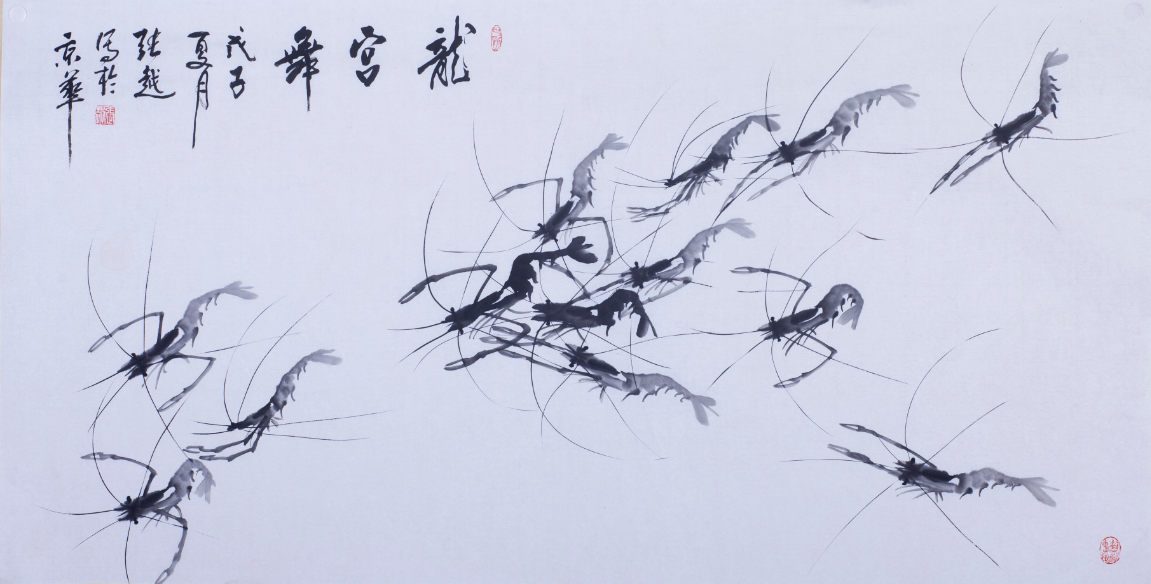 龍宮舞
戊子
夏月
張越
寫於
京華